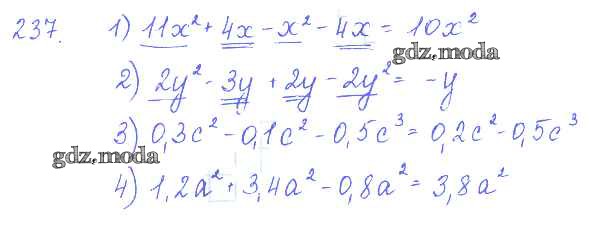 237. 1) 11x² + 4x - x² - 4x = 10x²
gdz.moda
2) 2y² - 3y + 2y - 2y² = -y
3) 0,3c² - 0,1c² - 0,5c³ = 0,2c² - 0,5c³
gdz.moda
4) 1,2a² + 3,4a² - 0,8a² = 3,8a²